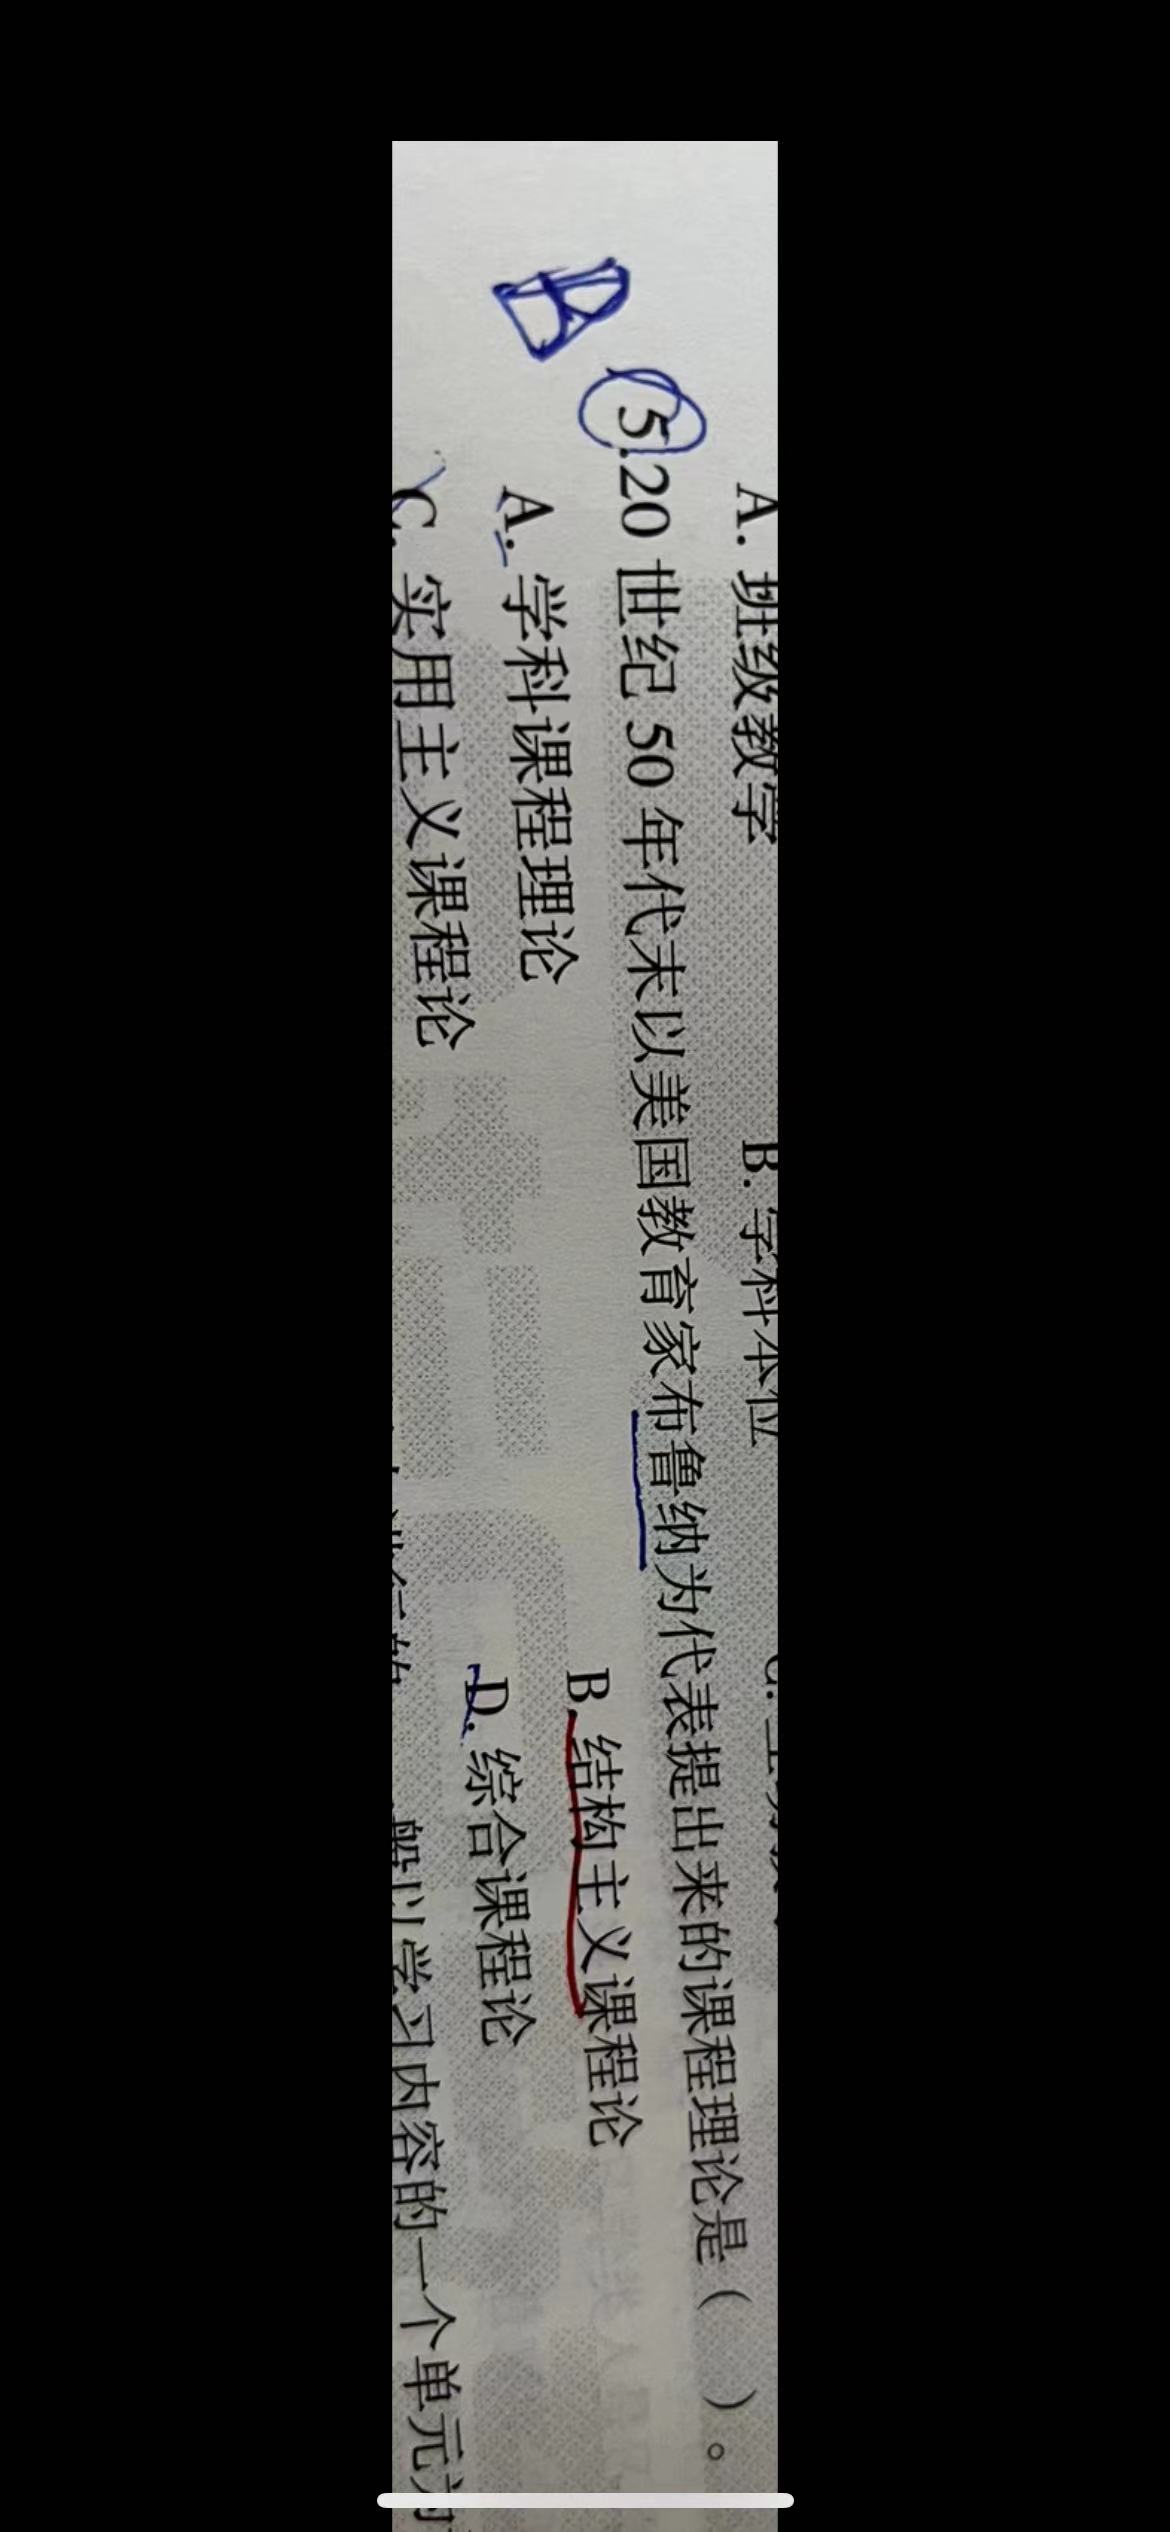 A. 班级教学 B. 学科本位
B
5.20 世纪 50 年代末以美国教育家布鲁纳为代表提出来的课程理论是（ ）。
A. 学科课程理论 B. 结构主义课程论
C. 实用主义课程论 D. 综合课程论
般以学习内容的一个单元